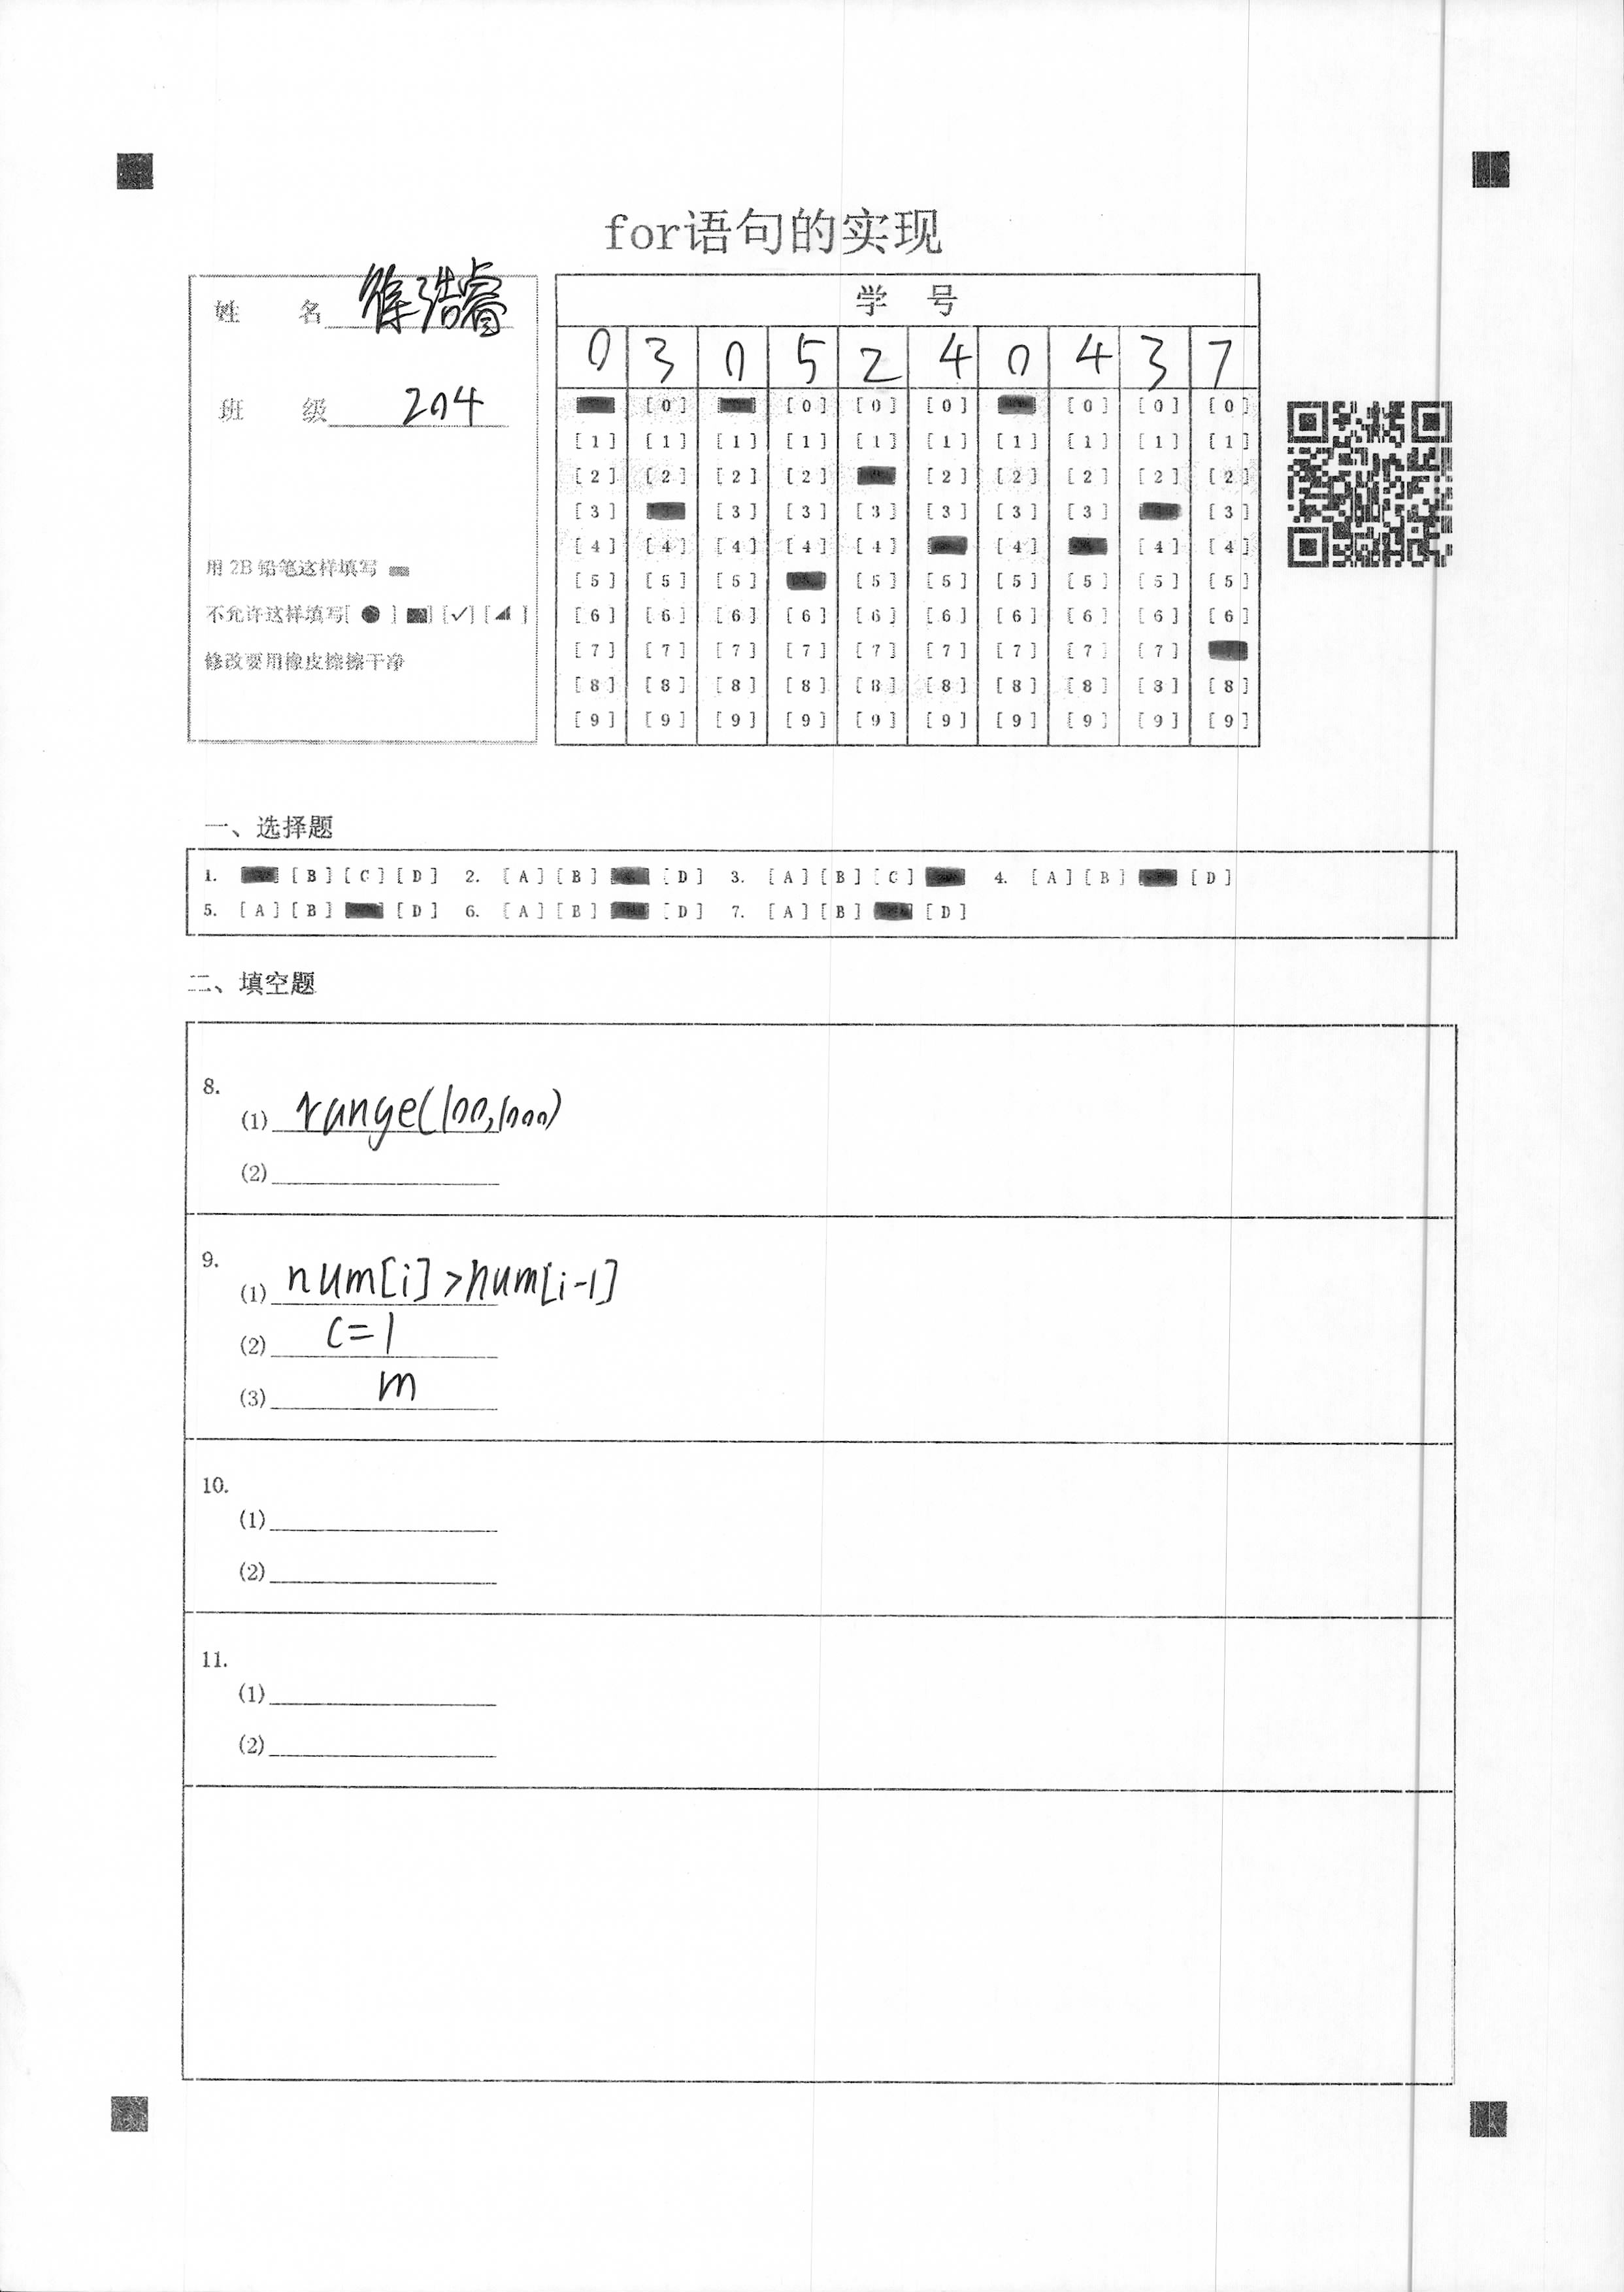 for语句的实现
姓 名 徐浩睿
班 级 204
用 2B 铅笔这样填写
不允许这样填写[ ● ] ■] [✓] [◢ ]
修改要用橡皮擦擦干净
学 号
0 3 0 5 2 4 0 4 3 7
[0] [0] [0] [0] [0] [0] [0]
[1] [1] [1] [1] [1] [1] [1] [1] [1] [1]
[2] [2] [2] [2] [2] [2] [2] [2] [2]
[3] [3] [3] [3] [3] [3] [3] [3]
[4] [4] [4] [4] [4] [4] [4] [4]
[5] [5] [5] [5] [5] [5] [5] [5] [5]
[6] [6] [6] [6] [6] [6] [6] [6] [6] [6]
[7] [7] [7] [7] [7] [7] [7] [7] [7]
[8] [8] [8] [8] [8] [8] [8] [8] [8] [8]
[9] [9] [9] [9] [9] [9] [9] [9] [9] [9]
一、选择题
1. [B] [C] [D] 2. [A] [B] [D] 3. [A] [B] [C] 4. [A] [B] [D]
5. [A] [B] [D] 6. [A] [B] [D] 7. [A] [B] [D]
二、填空题
8.
(1) range(100,1000)
(2)
9.
(1) num[i]>num[i-1]
(2) c=1
(3) m
10.
(1)
(2)
11.
(1)
(2)